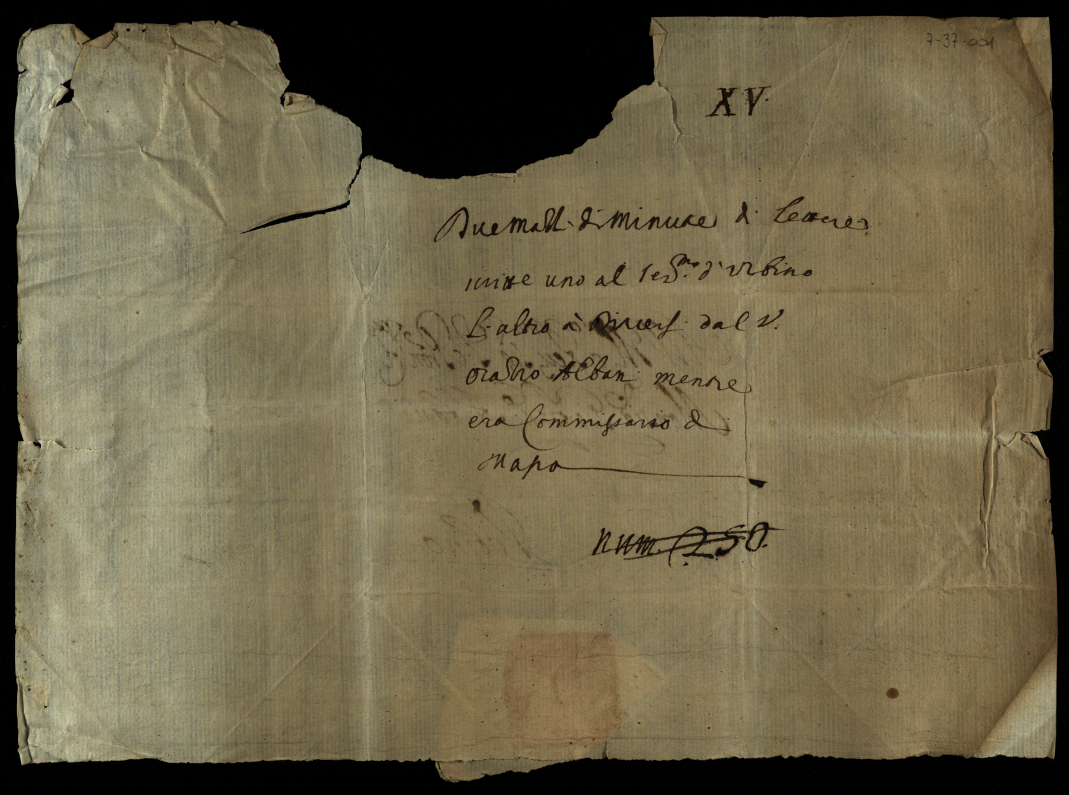 7-37-001
XV.
Due Mazzi di Minute di lettere
scritte uno al Ser.mo d'Urbino
L'altro à diversi dal S.
Oradio Alban mentre
era Commissario d
num. 250.